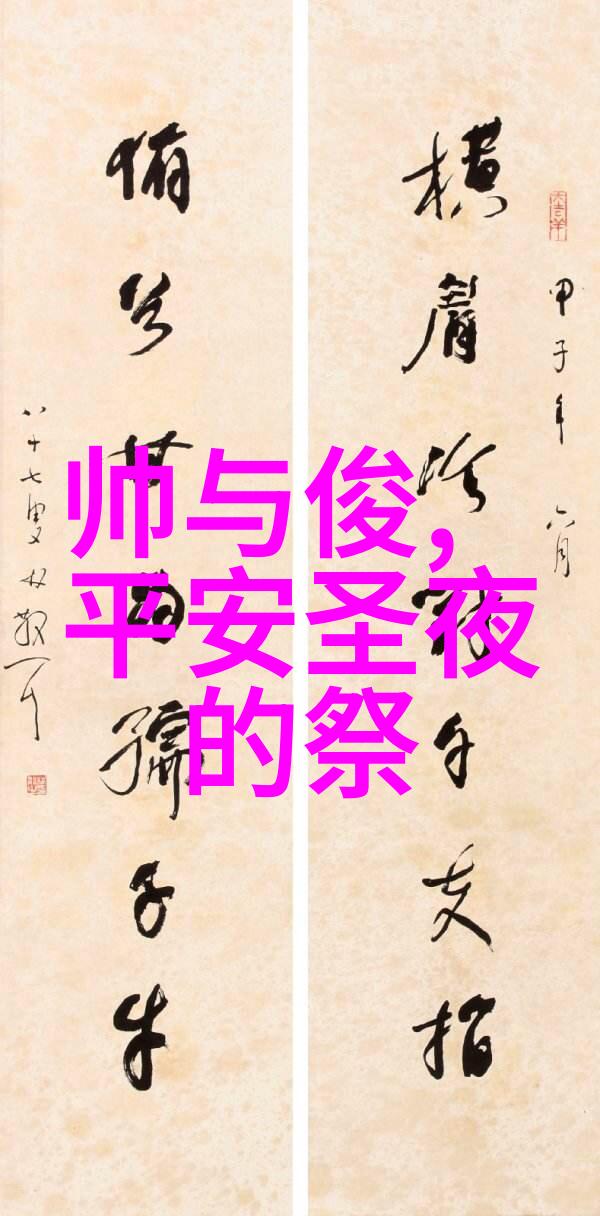 帅与俊,
平安圣夜
的祭
甲子年六月
横眉冷对千夫指
俯首甘为孺子牛
八十七叟林散耳
大吉羊